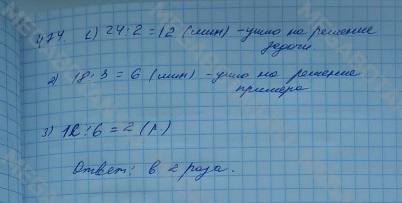 474. 1) 24:2=12 (мин) - ушло на решение
задачи
2) 18:3=6 (мин) - ушло на решение
примера
3) 12:6=2 (р)
Ответ: в 2 раза.